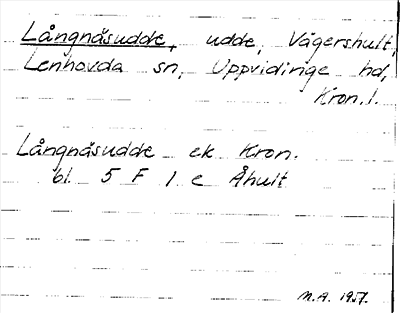 Långnäsudde, udde, Vägershult,
Lenhovda sn, Uppvidinge hd,
Kron. l.
Långnäsudde ek Kron.
bl. 5 F 1 e Åhult
M.A. 1957.